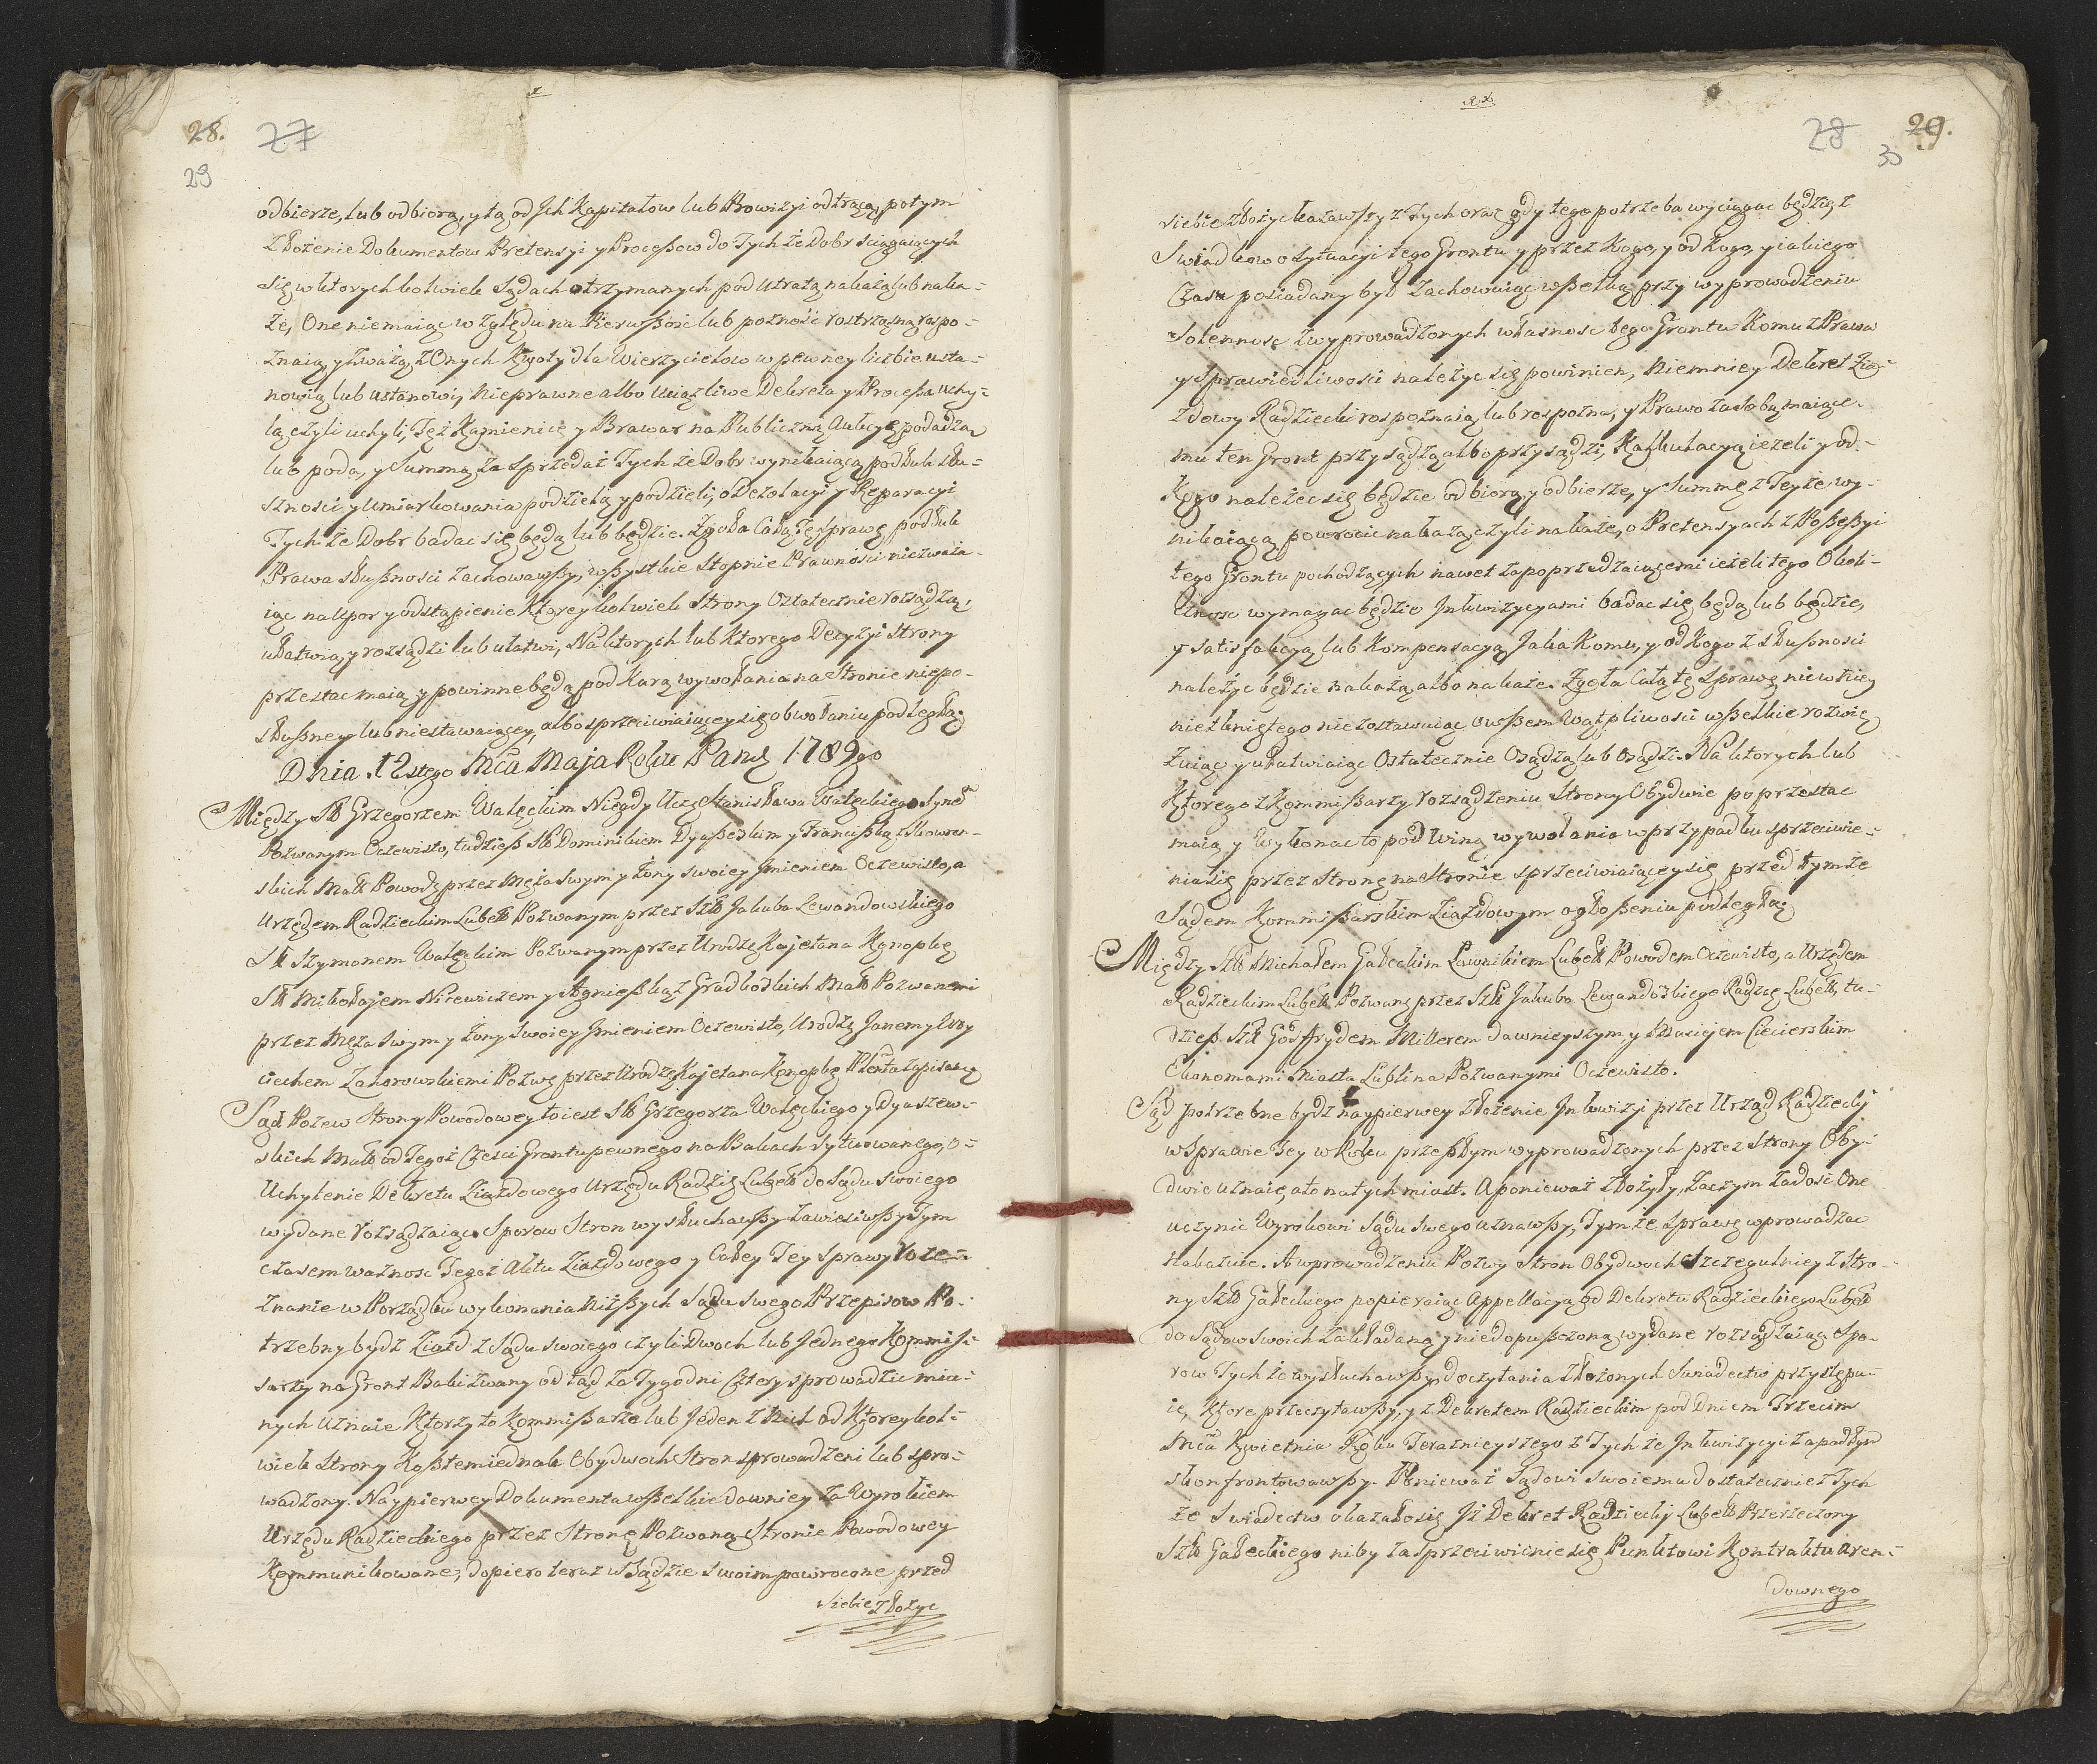 28. 27
29
odbierze, lub odbiorą, y tą od Jch Kapitałow lub Prowizyi odtrącą, potym
Złożenie Dokumentow Pretensyi y Processow do Tych że Dobr sciągaiących
się w ktorychkolwiek Sądach otrzymanych pod utratą nakażą lub naka-
że, One niemaiąc względu na Pierwszość lub poźność rostrząsną, rospo-
znaią, y zważą, z Onych Kwoty dla Wierzycielow w pewney liczbie usta-
nowią lub ustanowi, Nieprawne albo Uciązliwe Dekreta y Processa uchy-
lą czyli uchyli, Też Kamienicę y Browar na Publiczną Aukcyę podadzą
lub poda, y Summą za sprzedaż Tych że Dobr wynikaiącą podług słu-
szności y umiarkowania podzielą y podzieli, o Dezolacyi y Reparacyi
Tych że Dobr badac się będą lub będzie. Zgoła Całą Tę Sprawę podług
Prawa słusznosci zachowawszy, wszystkie Stopnie Prawnosci niezważa-
iąc na Upor y odstąpienie Ktoreykolwiek Strony Ostatecznie rozsądzą,
ułatwią, y rozsądzi lub ułatwi, Na ktorych lub Ktorego Decyzyi Strony
przestac maią y powinne będą pod Karą wywołania na Stronie niepo-
słuszney lub niestawaiącey, albo sprzeciwiaiącey się obwołaniu podległą.
Dnia 12stego Mca Maja Roku Pansg 1789go
Między Sł Grzegorzem Wałęckim Niegdy Uczg Stanisława Wałęckiego Synem
Pozwanym Oczewisto, tudziesz Sł Dominikiem Dyaszeskim y Franciszką z
skich Małż Powodg przez Męża swym y Żony swoiey Jmieniem Oczewisto, a
Urzędem Radzieckim Lubel Pozwanym przez Szł Jakuba Lewandowskiego
Sł Szymonem Wałęckim Pozwanym przez Urodzg Kajetana Konopkę
Sł Mikołajem Nirewiczem y Agnieszką z Gradkoskich Małż Pozwanemi
przez Męża swym y Żony swoiey Jmieniem Oczewisto, Urodzg Janem y Woy
ciechem Zahorowskiemi Pozwg przez Urodzg Kajetana Konopkę Plenta zapisanego
Sąd Pozew Strony Powodowey to iest Sł Grzegorza Wałęckiego y Dyaszew-
skich Małż od Tegoż Części Grontu pewnego na Bakach sytuowanego, o
Uchylenie Dekretu Ziazdowego Urzędu Radzieg Lubel do Sądu swoiego
wydane rozsądzaiąc Sporow Stron wysłuchawszy Zawiesiwszy Tym
czasem waznosc Tegoż Aktu Ziazdowego y Całey Tey Sprawy roze-
znanie w Porządku wykonania Niższych Sądu swego Przepisow Po-
trzebny bydz Ziazd z Sądu swoiego czyli Dwoch lub Jednego Kommis-
sarzy na Gront Baki zwany od tąd za Tygodni Cztery sprowadzic mia-
nych uznaie Ktorzy to Kommissarze lub Jeden z Nich od Ktoreykol-
wiek Strony Kosztem iednak Obydwoch Stron sprowadzeni lub spro-
wadzony. Naypierwey Dokumenta wszelkie dawniey za Wyrokiem
Urzędu Radzieckiego przez Stronę Pozwaną Stronie Powodowey
Kommunikowane, dopiero teraz w Sądzie swoim powrocone przed
siebie złożyc
28 29.
30
siebie złożyc kazawszy z Tych oraz gdy tego potrzeba wyciągac będzie z
Swiadkow o sytuacyi tego Grontu y przez Kogo, y od Kogo, y iakiego
Czasu posiadany był zachowuiąc wszelką przy wyprowadzeniu
Solennosc z wyprowadzonych własnosc tego Grontu Komu z Prawa
y sprawiedliwosci należyc się powinien, Niemniey Dekret Zia-
zdowy Radziecki rospoznaią lub rospozna, y Prawo za sobą maiące-
mu ten Gront przysądzą albo przysądzi, Kalkulacyą iezeli y od
Kogo należec się będzie odbiorą y odbierze, y Summę z Teyże wy-
nikaiącą powrocic nakażą czyli nakaże, o Pretensyach z Possessyi
tego Grontu pochodzących nawet zapoprzedzaiącemi ieżeli tego Okoli-
cznosc wymagac będzie Jnkwizycyami badac się będą lub będzie,
y satisfakcyą lub Kompensacyą Jaka Komu, y od Kogo z słusznosci
należyc będzie nakażą albo nakaże. Zgoła Całą tę Sprawę nic w Niey
nietkniętego niezostawuiąc owszem Wątpliwosci wszelkie rozwię
zuiąc y ułatwiaiąc Ostatecznie Osądzą lub osądzi. Na ktorych lub
Ktorego z Kommissarzy rozsądzeniu Strony Obydwie poprzestac
maią y Wykonac to pod Winą wywołania w przypadku sprzeciwie-
nia się przez Stronę na Stronie sprzeciwiaiącey się przed tymże
Sądem Kommissarskim Ziazdowym ogłoszeniu podległą.
Między Szł Michałem Gałeckim Ławnikiem Lubel Powodem Oczewisto, a Urzędem
Radzieckim Lubel Pozwang przez Szł Jakuba Lewandoskiego Radzcę Lubel, tu-
dziesz Szł Godfrydem Millerem dawnieyszym y Maciejem Ciecierskim
Ekonomami Miasta Lublina Pozwanymi Oczewisto.
Sąd potrzebne bydz naypierwey złożenie Jnkwizyi przez Urząd Radziecky
w Sprawie Tey w Roku przeszłym wyprowadzonych przez Strony Oby-
dwie uznaie, a to natychmiast. A ponieważ złożyły, zaczym zadość One
uczynic Wyrokowi Sądu swego uznawszy, Tymże sprawę wprowadzac
nakazuie. A wprowadzeniu Pozwy Stron Obydwoch szczegulniey z Stro-
ny Szł Gałeckiego popieraiąc Appellacyą od Dekretu Radzieckiego Lubel
do Sądow swoich zakładaną y niedopuszczoną wydane rozsądzaiąc Spo-
row Tych że wysłuchawszy, do czytania złożonych Swiadectw przystępu-
ie, Ktore przeczytawszy, y z Dekretem Radzieckim pod Dniem Trzecim
Mca Kwietnia Roku Teraznieyszego z Tych że Jnkwizycyi zapadłym
skonfrontowawszy. Ponieważ Sądowi swoiemu dostatecznie z Tych
że Swiadectw okazało się Jż Dekret Radziecky Lubel Przerzeczony
Szł Gałeckiego niby za sprzeciwienie się Punktowi Kontraktu Aren-
downego